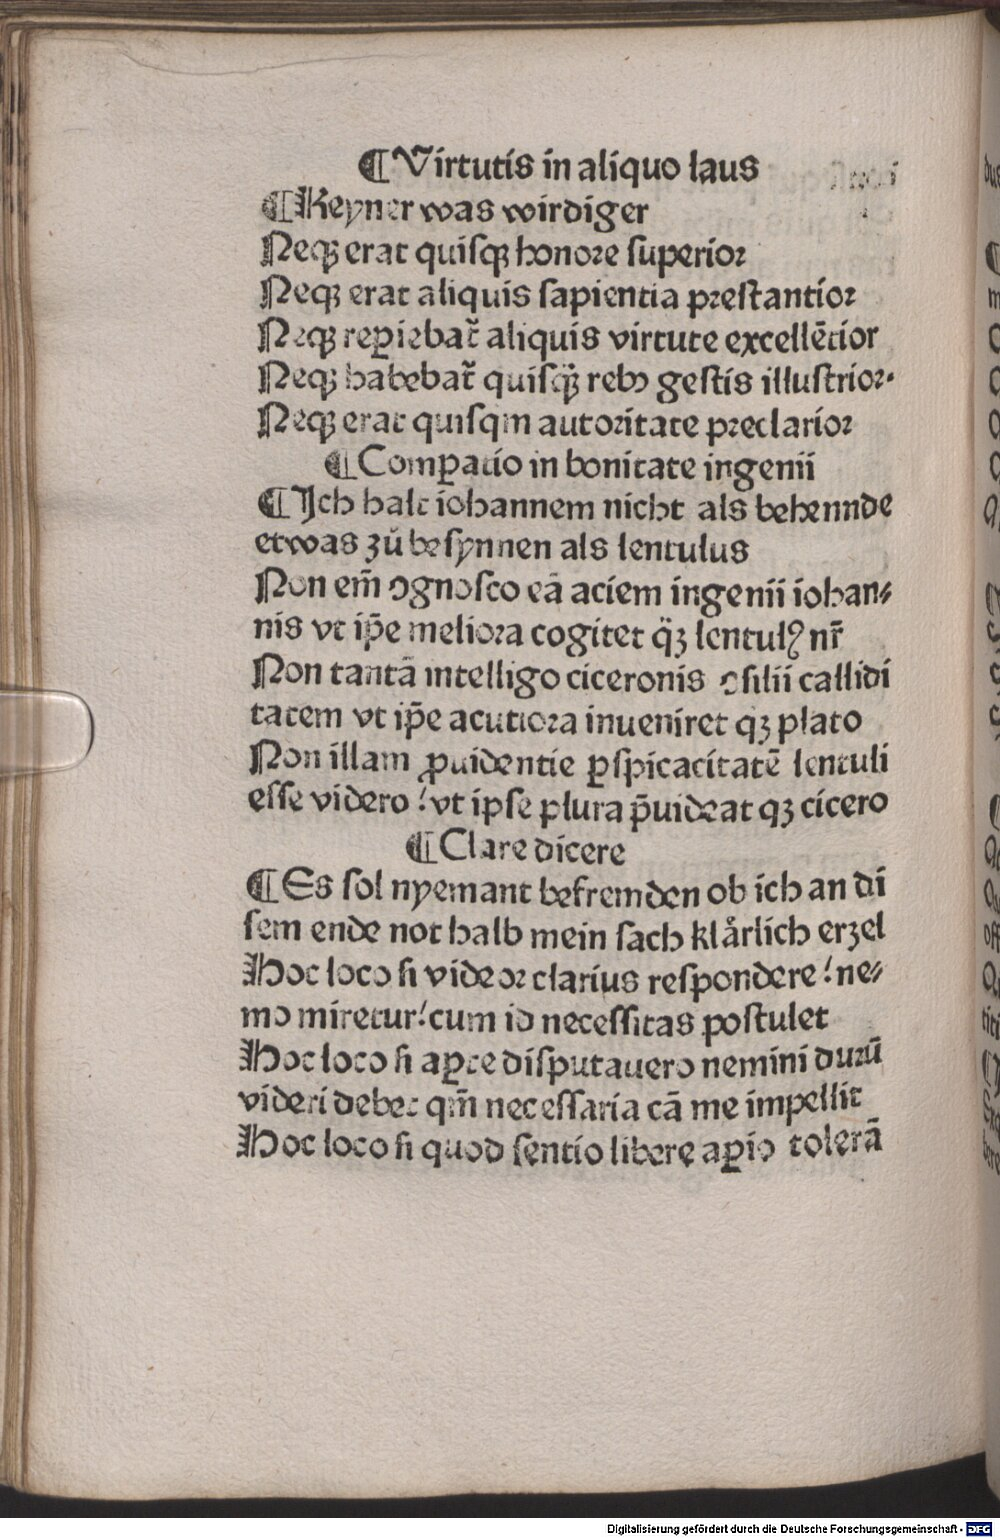 ¶Virtutis in aliquo laus
¶Keyner was wirdiger
Neqꝫ erat quiſqꝫ honoꝛe ſuperioꝛ
Neqꝫ erat aliquis ſapientia pꝛeſtantioꝛ
Neqꝫ reꝑiebat᷑ aliquis virtute excellēcioꝛ
Neqꝫ habebat᷑ quiſqꝫ̄ rebꝰ geſtis illuſtrioꝛ·
Neqꝫ erat quiſqm autoꝛitate pꝛeclarioꝛ
¶Comꝑatio in bonitate ingenii
¶Ich halt iohannem nicht als behennde
etwas zů beſynnen als lentulus
Non em̄ ↄgnoſco eā aciem ingenii iohan⸗
nis vt ip̄e melioꝛa cogitet q̈ꝫ lentulꝰ nr̄
Non tantā intelligo ciceronis ↄſilii callidi
tatem vt ip̄e acutioꝛa inueniret qꝫ plato
Non illam ꝓuidentie ꝑſpicacitatē lentuli
eſſe videro / vt ipſe plura p̄uideat qꝫ cicero
¶Clare dicere
¶Es ſol nyemant befremden ob ich an di
ſem ende not halb mein ſach klårlich erzel
Hoc loco ſi videoꝛ clarius reſpondere / ne⸗
mo miretur / cum id neceſſitas poſtulet
Hoc loco ſi aꝑte diſputauero nemini durū
videri debet qm̄ neceſſaria cā me impellit
Hoc loco ſi quod ſentio libere aꝑio tolerā
Digitalisierung gefördert durch die Deutsche Forschungsgemeinschaft - DFG